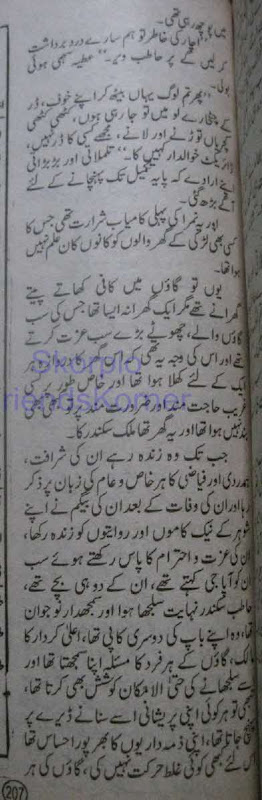 میں پو چھ رہی تھی۔
"اچار کی خاطر تو ہم سارے درد برداشت
کر لیں گے پر حاطب ویر۔" عطیہ سہمی ہوئی
بولی۔
"پھر تم لوگ یہاں بیٹھ کر اپنے خوف، ڈر
کے چٹخارے لو میں تو جا رہی ہوں، کٹھی کٹھی
کیریاں توڑنے اور لانے، مجھے کسی کا ڈر نہیں،
ڈائریکٹ حوالدار کہیں کا۔" تلملاتی اور بڑبڑاتی
اپنے ارادے کہ پایہ تکمیل تک پہنچانے کے لئے
آگے بڑھ گئی۔
اور یہ نمرا کی پہلی کامیاب شرارت تھی جس کا
کسی بھی لڑکی کے گھر والوں کو کانوں کان علم نہیں
ہوا تھا۔
یوں تو گاؤں میں کافی کھاتے پیتے
گھرانے تھے مگر ایک گھرانہ ایسا تھا جس کی سب
گاؤں والے، چھوٹے بڑے سب عزت کرتے
تھے اور اس کی وجہ یہ تھی کہ اس گھر کا دروازہ ہر
ایک کے لئے کھلا ہوا تھا اور خاص طور پر کسی
غریب حاجت مند اور ضرورت مند پر تو کبھی بھی
بند نہیں ہوا تھا اور یہ گھر تھا ملک سکندر کا۔
Skorpio
FriendsKorner
جب تک وہ زندہ رہے ان کی شرافت،
ہمدردی اور فیاضی کا ہر خاص و عام کی زبان پر ذکر
رہا اور ان کی وفات کے بعد ان کی بیگم نے اپنے
شوہر کے نیک کاموں اور روایتوں کو زندہ رکھا،
ان کی عزت و احترام کا پاس رکھتے ہوئے سب
ان کو آپا جی کہتے تھے، ان کے دو ہی بچے تھے،
حاطب سکندر نہایت سلجھا ہوا اور سمجھدار نوجوان
تھا، وہ اپنے باپ کی دوسری کاپی تھا، اعلیٰ کردار کا
مالک، گاؤں کے ہر فرد کا مسئلہ اپنا سمجھتا تھا اور
اسے سلجھانے کی حتی الامکان کوشش بھی کرتا تھا،
تبھی تو ہر کوئی اپنی پریشانی اسے سنانے ڈیرے پر
پہنچ جاتا تھا، اپنی ذمہ داریوں کا بھرپور احساس تھا
اس لئے کبھی کوئی غلط حرکت نہیں کی، گاؤں کی ہر
207